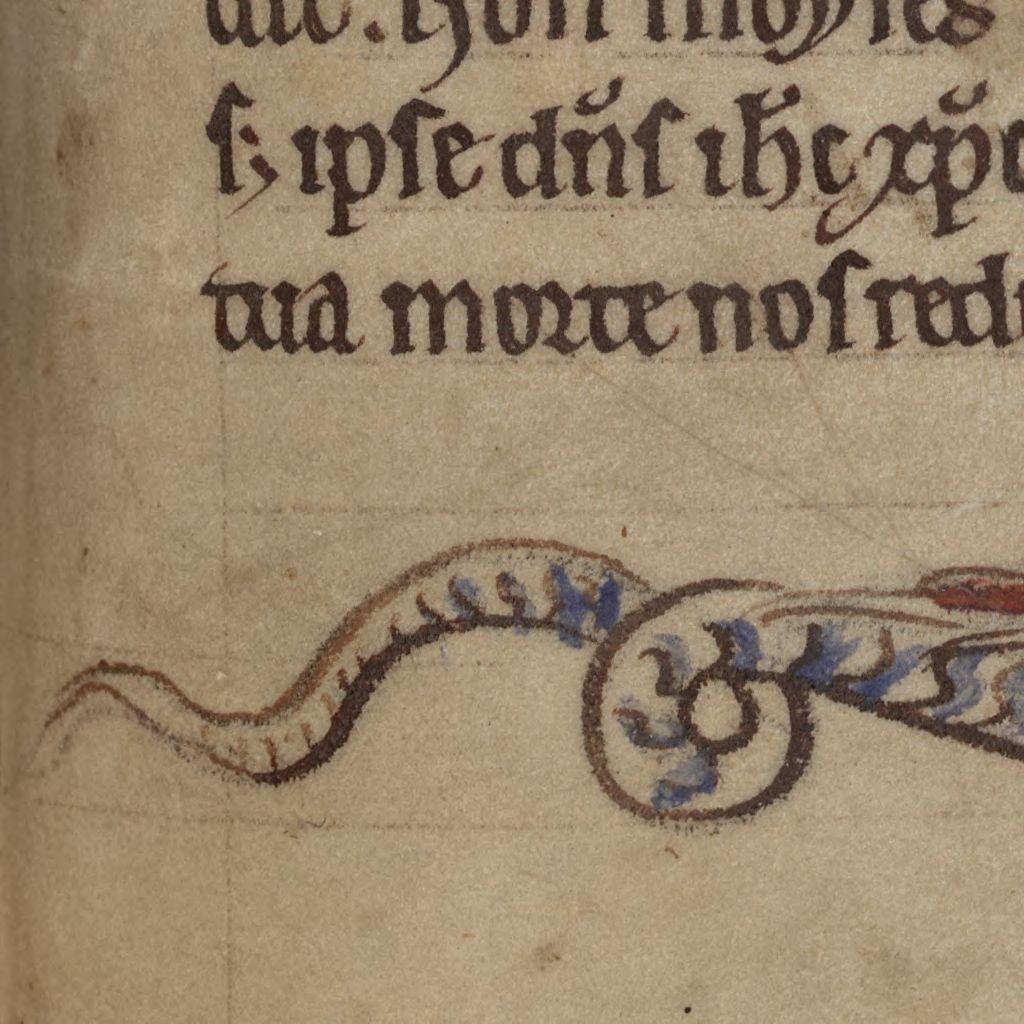 Non moyses
s; ipse dn̄s ih̄c xp̄
sua morte nos red